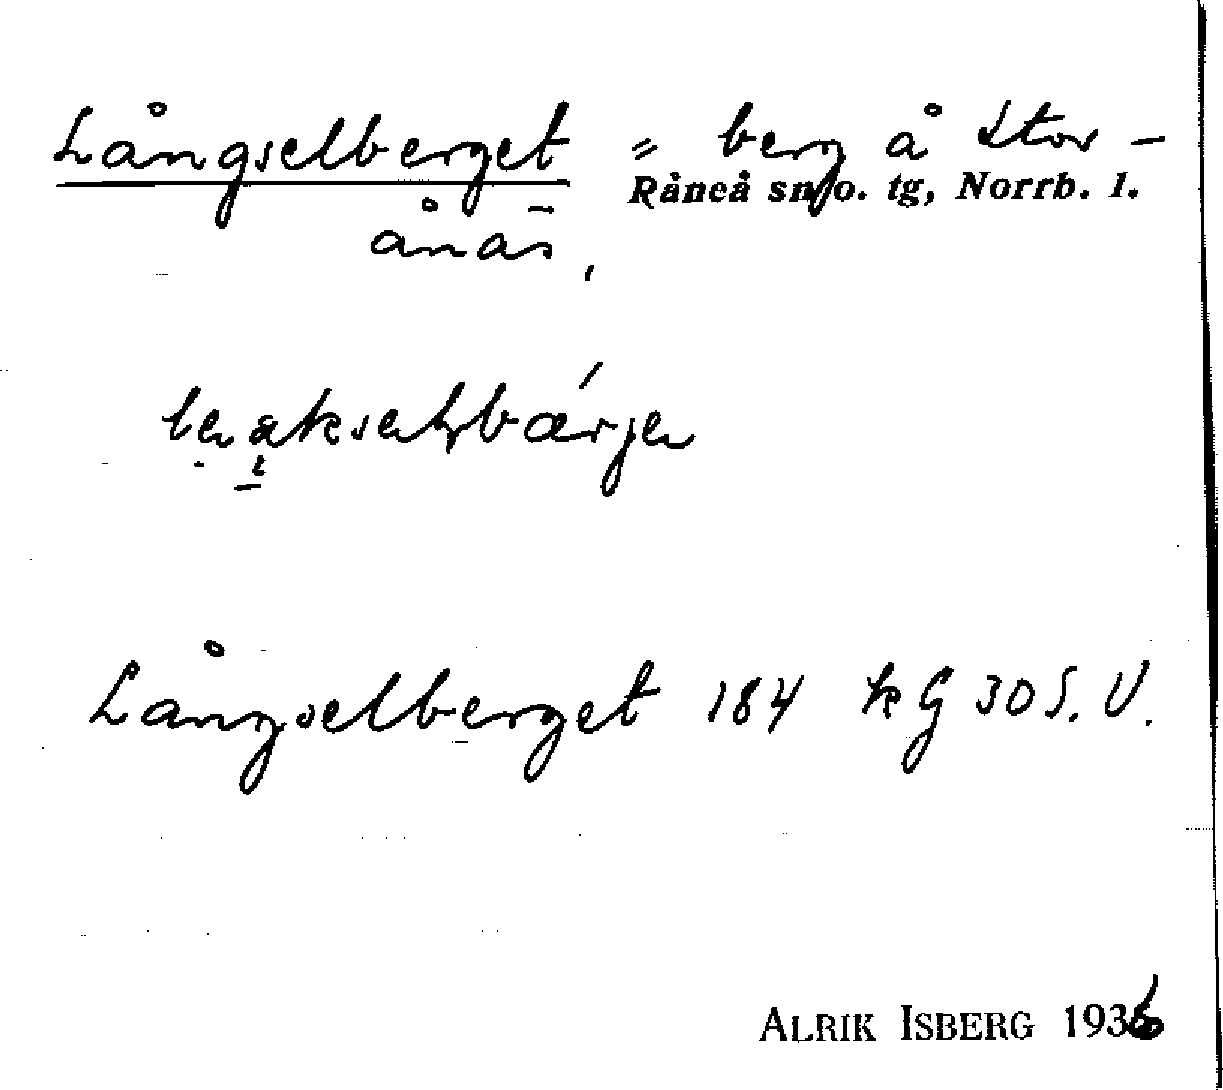 Långselberget = berg å Stor-
Råneå sn o. tg, Norrb. l.
ånäs,
Långselberget 184 kG 30 S.V.
ALRIK ISBERG 1936